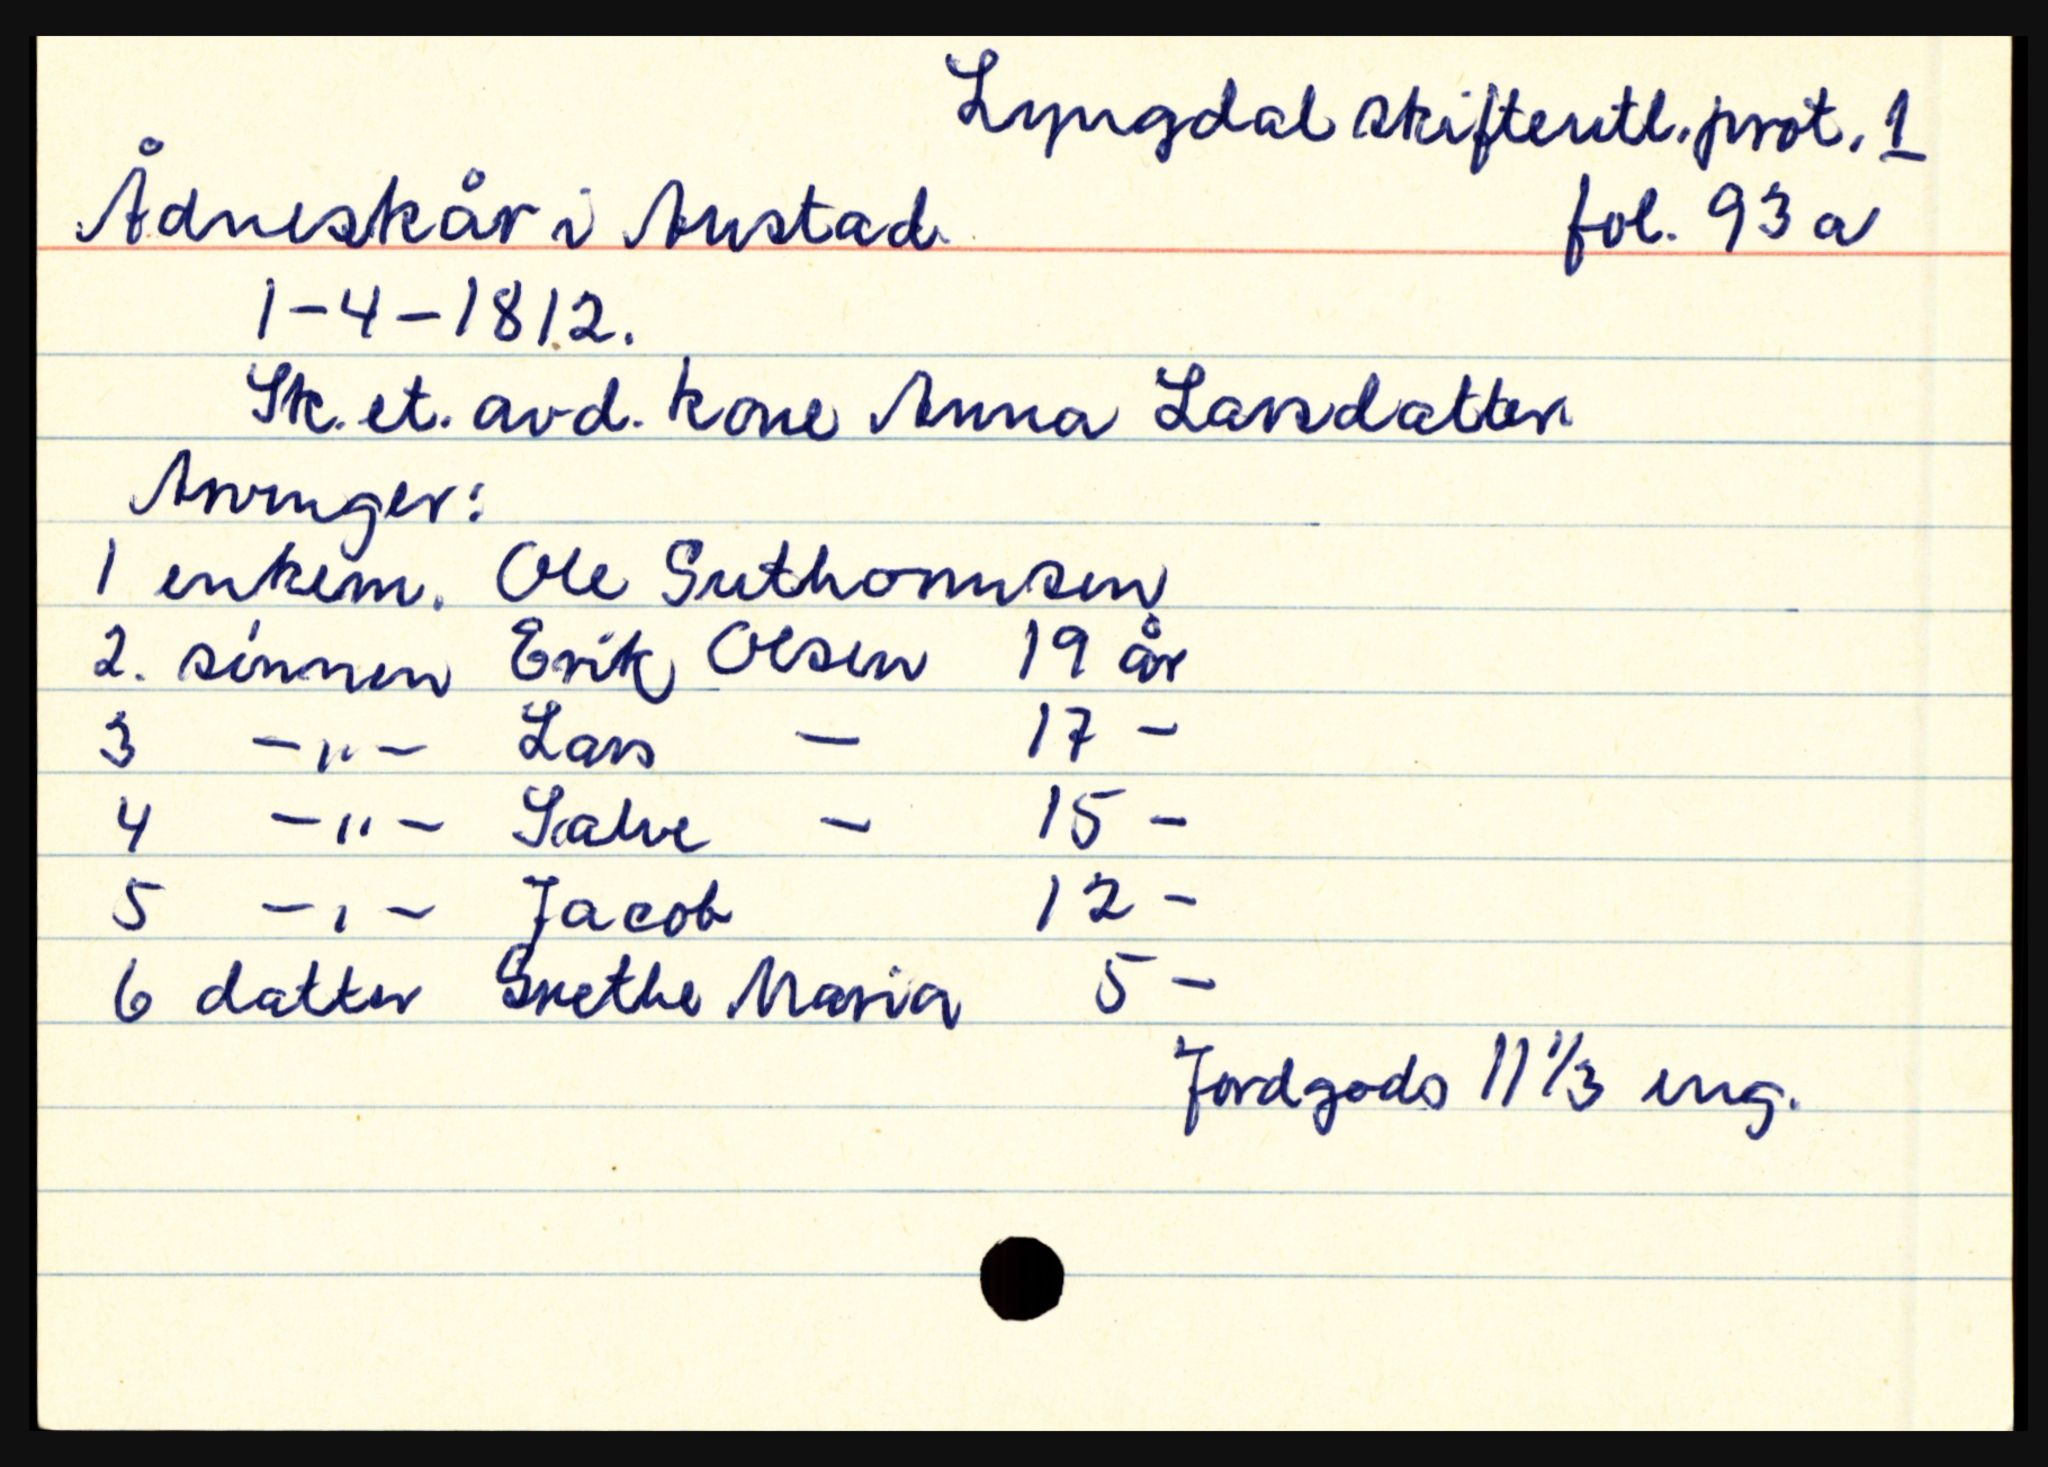 Lyngdal skifteutl. prot. 1
Ådneskår i Austad fol. 93 a
1-4-1812.
Sk. et. avd. kone Anna Larsdatter
Arvinger:
1 enkem. Ole Guthormsen
2. sönnen Erik Olsen 19 år
3 -"- Lars - 17 -
4 -"- Salve - 15 -
5 -"- Jacob 12 -
6 datter Grethe Maria 5 -
Jordgods 11 1/3 eng.